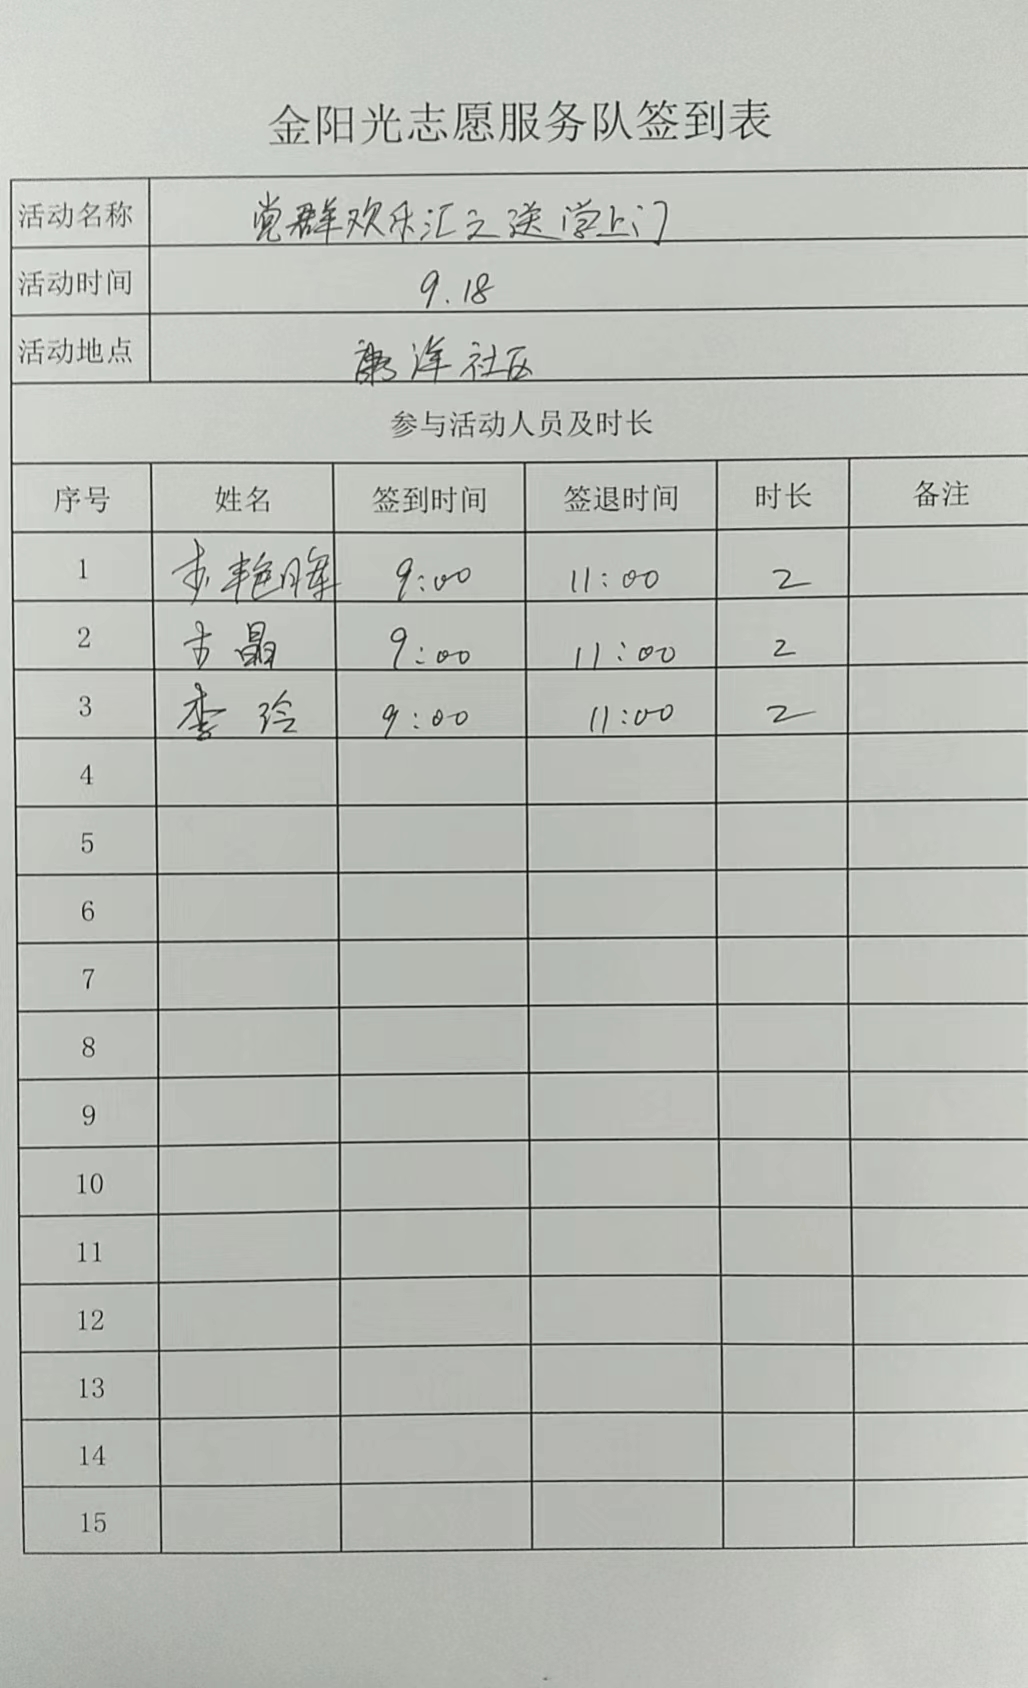 金阳光志愿服务队签到表
活动名称 党群欢乐汇之送学上门
活动时间 9.18
活动地点 洋社区
参与活动人员及时长
序号 姓名 签到时间 签退时间 时长 备注
1 艳晖 9:00 11:00 2
2 晶 9:00 11:00 2
3 李玲 9:00 11:00 2
4
5
6
7
8
9
10
11
12
13
14
15